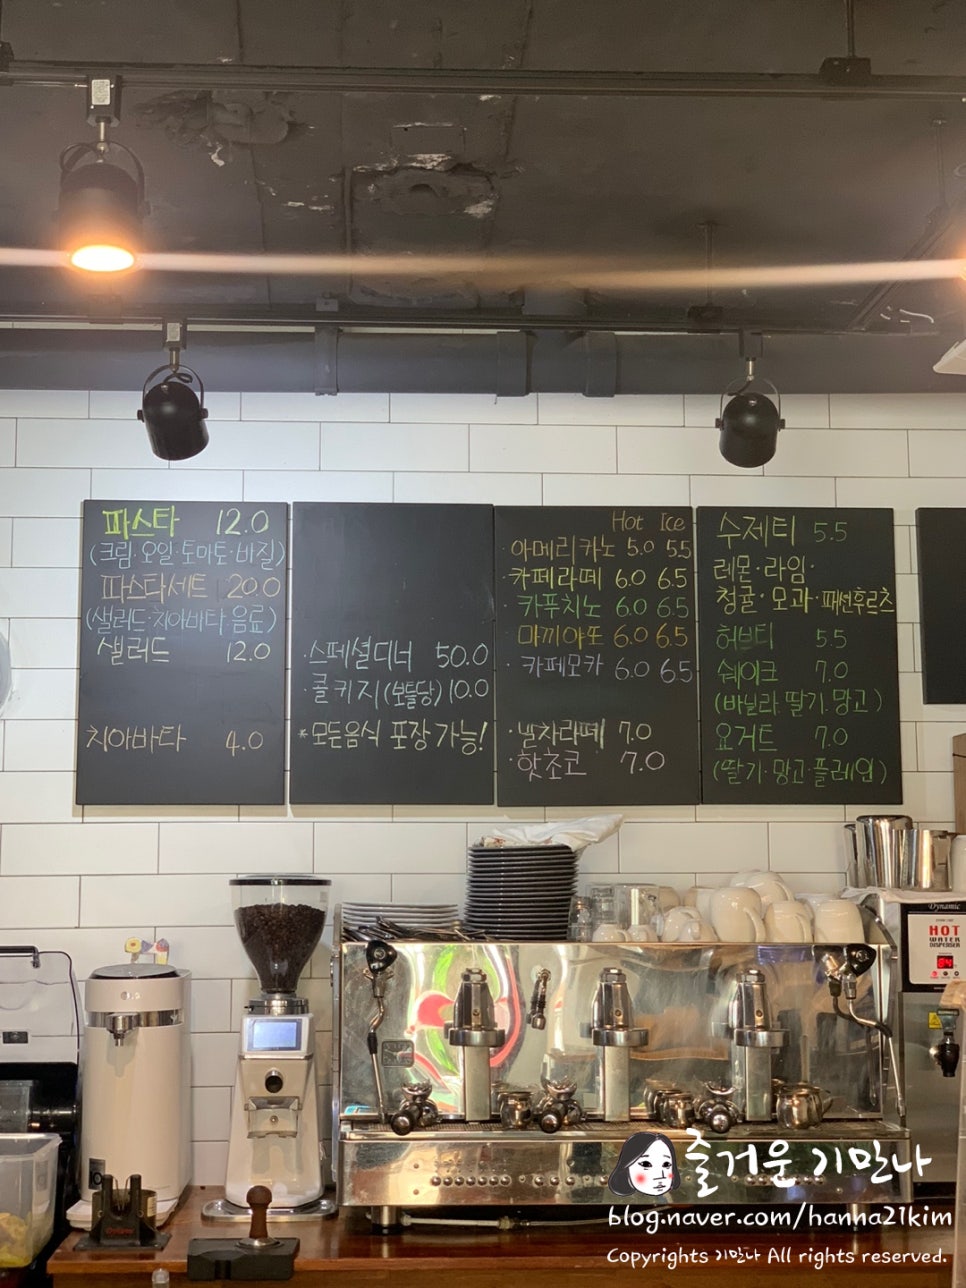 파스타 12.0
(크림·오일·토마토·바질)
파스타세트 20.0
(샐러드·치아바타·음료)
샐러드 12.0
치아바타 4.0
·스페셜디너 50.0
·콜키지(보틀당) 10.0
*모든음식 포장 가능!
Hot Ice
·아메리카노 5.0 5.5
·카페라떼 6.0 6.5
·카푸치노 6.0 6.5
·마끼야또 6.0 6.5
·카페모카 6.0 6.5
·말차라떼 7.0
·핫초코 7.0
수제티 5.5
레몬·라임·
청귤·모과·패션후르츠
허브티 5.5
쉐이크 7.0
(바닐라 딸기 망고)
요거트 7.0
(딸기·망고·플레인)
Dynamic
HOT
WATER
DISPENSER
LG
즐거운 기만나
blog.naver.com/hanna21kim
Copyrights 기만나 All rights reserved.